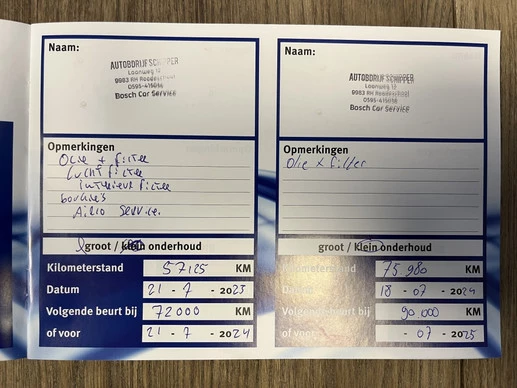 Naam:
AUTOBDRIJF SCHIPPER
Laanweg 12
9983 RH Roodeschool
0595-415056
Bosch Car Service
Opmerkingen
Olie + filter
Lucht filter
interieur filter
bougie's
Airco Service.
groot / klein onderhoud
Kilometerstand 57125 KM
Datum 21 - 7 - 2023
Volgende beurt bij 72000 KM
of voor 21 - 7 - 2024
Naam:
AUTOBDRIJF SCHIPPER
Laanweg 12
9983 RH Roodeschool
0595-415056
Bosch Car Service
Opmerkingen
Olie + filter
groot / klein onderhoud
Kilometerstand 75980 KM
Datum 18 - 07 - 2024
Volgende beurt bij 90 000 KM
of voor - 07 - 2025